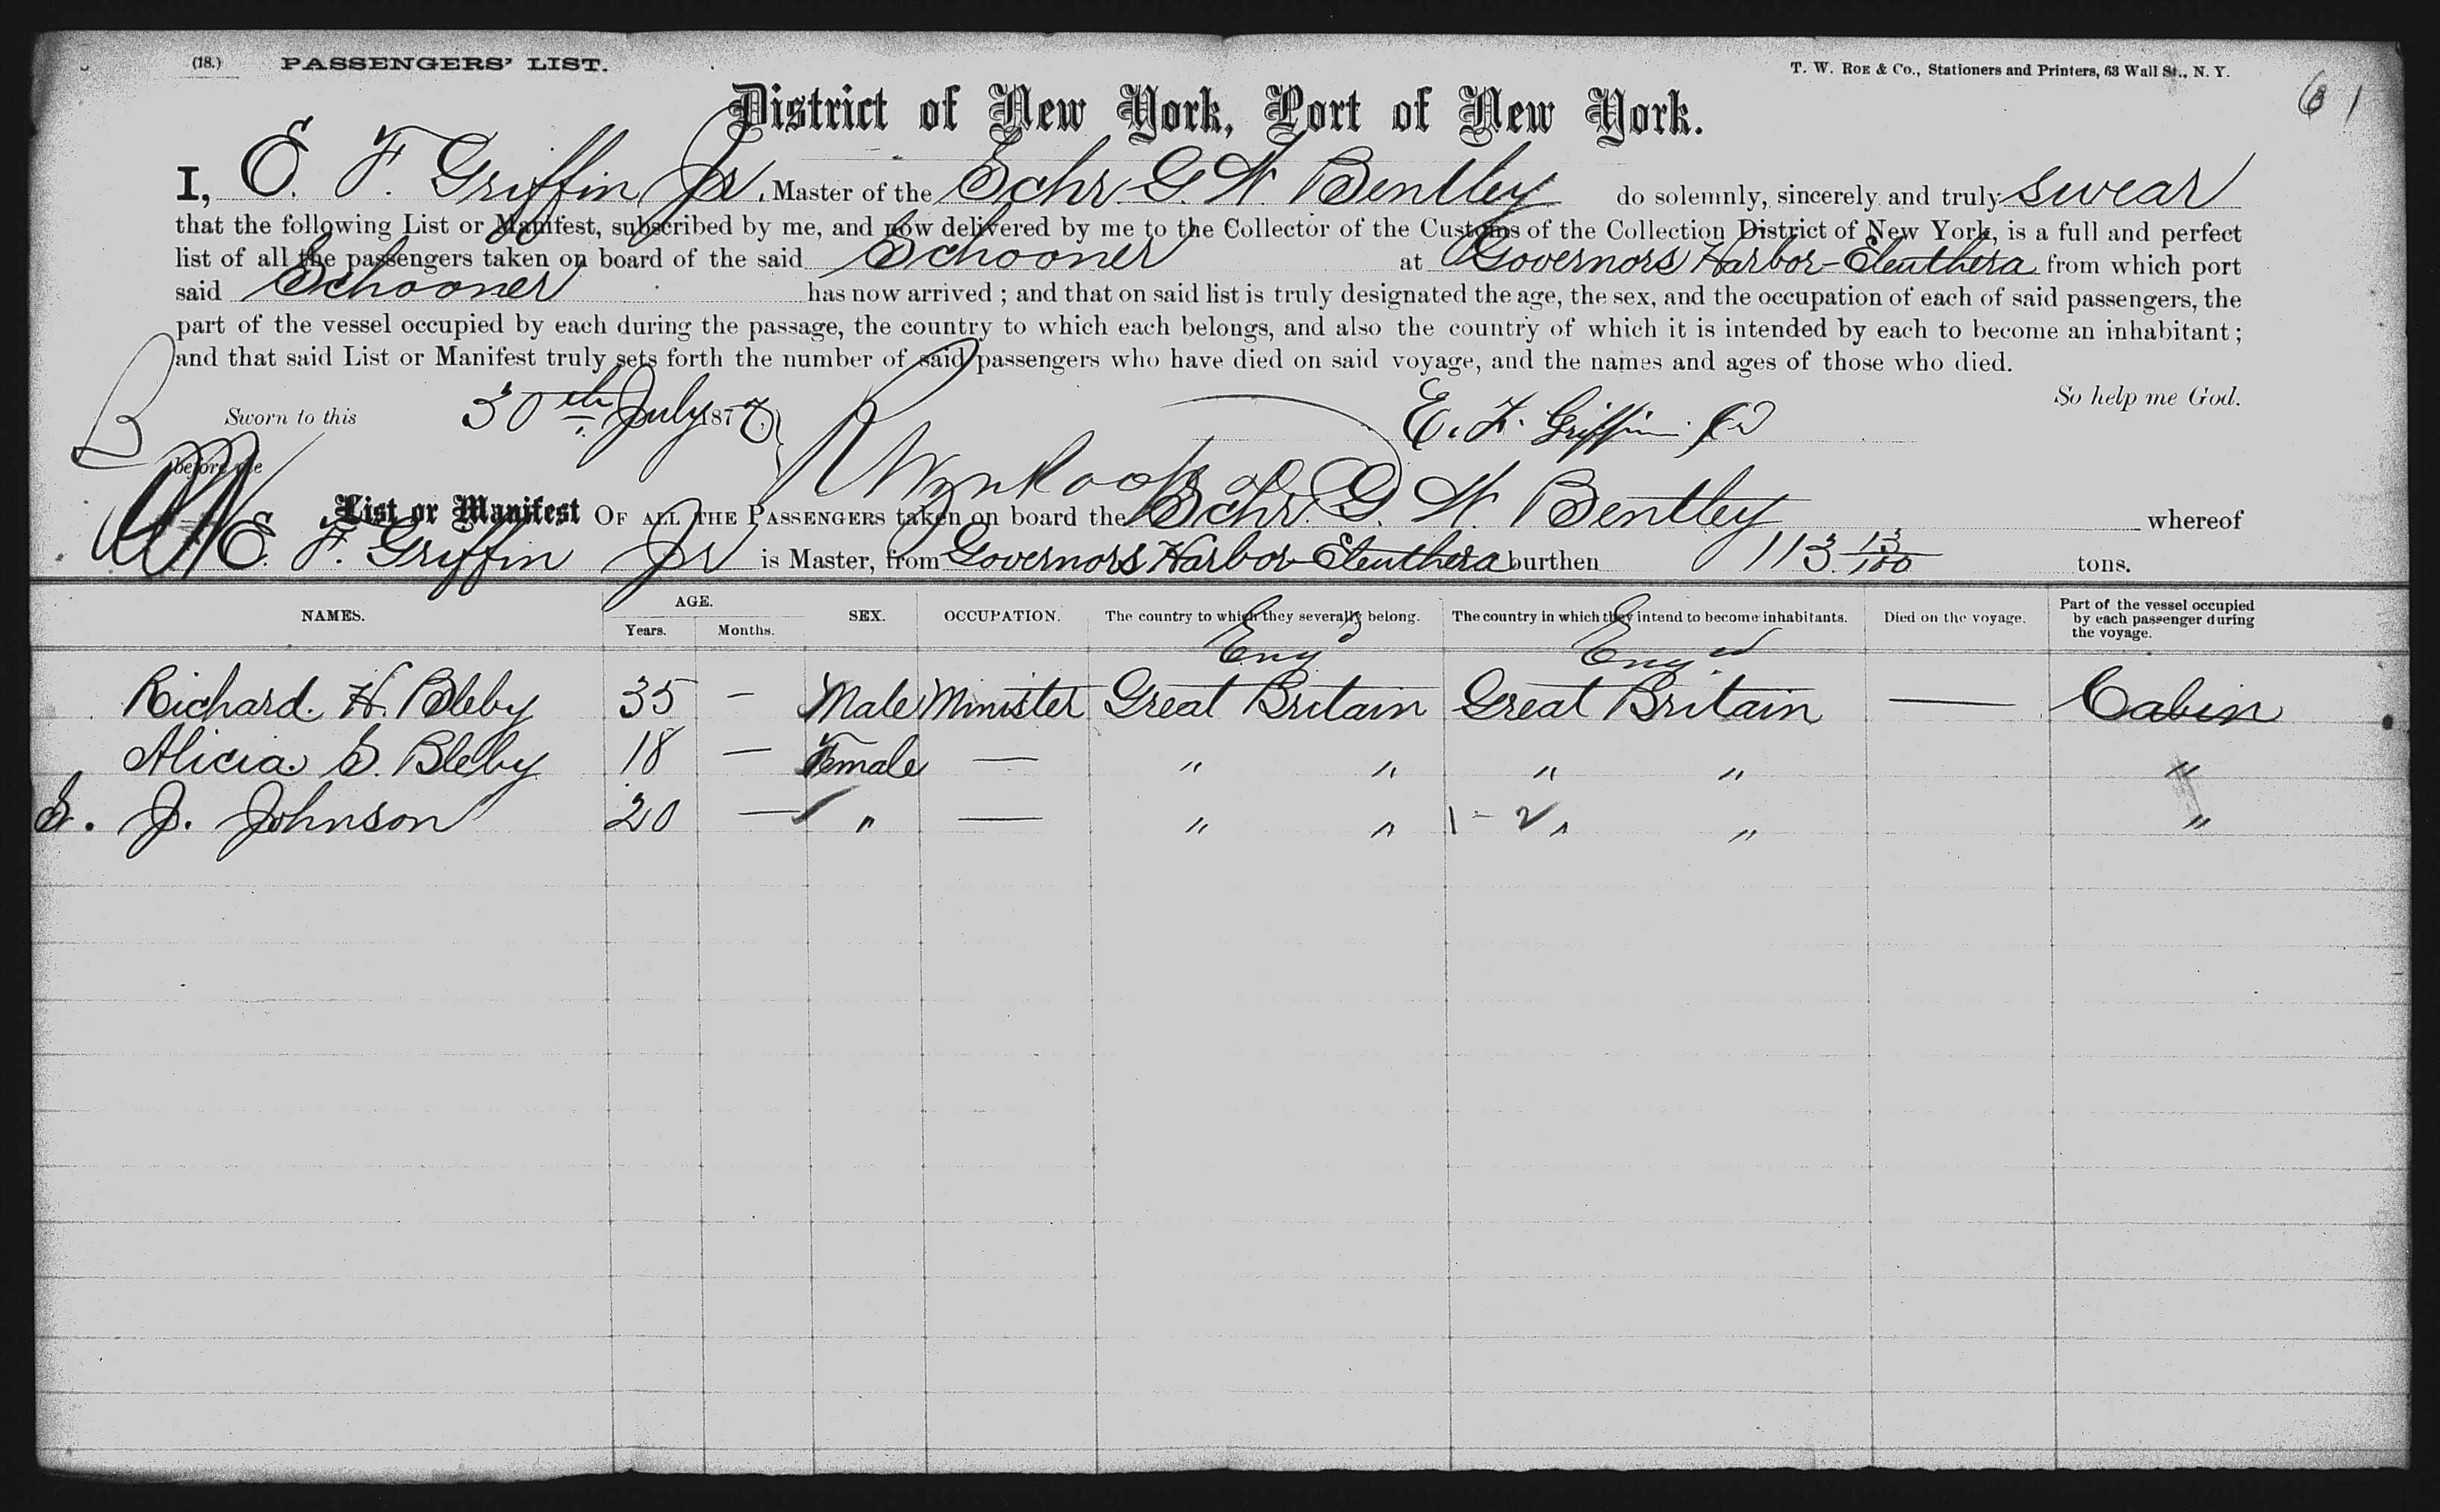 (18.) PASSENGERS' LIST.
T. W. ROE & CO., Stationers and Printers, 63 Wall St., N. Y.
61
District of New York, Port of New York.
I, E. F. Griffin Jr. Master of the Schr G. W. Bentley do solemnly, sincerely and truly swear
that the following List or Manifest, subscribed by me, and now delivered by me to the Collector of the Customs of the Collection District of New York, is a full and perfect
list of all the passengers taken on board of the said Schooner at Governors Harbor-Eleuthera from which port
said Schooner has now arrived ; and that on said list is truly designated the age, the sex, and the occupation of each of said passengers, the
part of the vessel occupied by each during the passage, the country to which each belongs, and also the country of which it is intended by each to become an inhabitant ;
and that said List or Manifest truly sets forth the number of said passengers who have died on said voyage, and the names and ages of those who died.
So help me God.
Sworn to this 30th July 1877 E. F. Griffin Jr
before me
List or Manifest OF ALL THE PASSENGERS taken on board the Schr. G. W. Bentley whereof
E. F. Griffin Jr is Master, from Governors Harbor-Eleuthera burthen 113 13/100 tons.
NAMES. AGE. Years. Months. SEX. OCCUPATION. The country to which they severally belong. The country in which they intend to become inhabitants. Died on the voyage. Part of the vessel occupied by each passenger during the voyage.
Eng Eng
Richard. H. Bleby 35 — Male Minister Great Britain Great Britain — Cabin
Alicia S. Bleby 18 — Female — " " " " "
S. J. Johnson 20 — " — " " 1-2 " " "